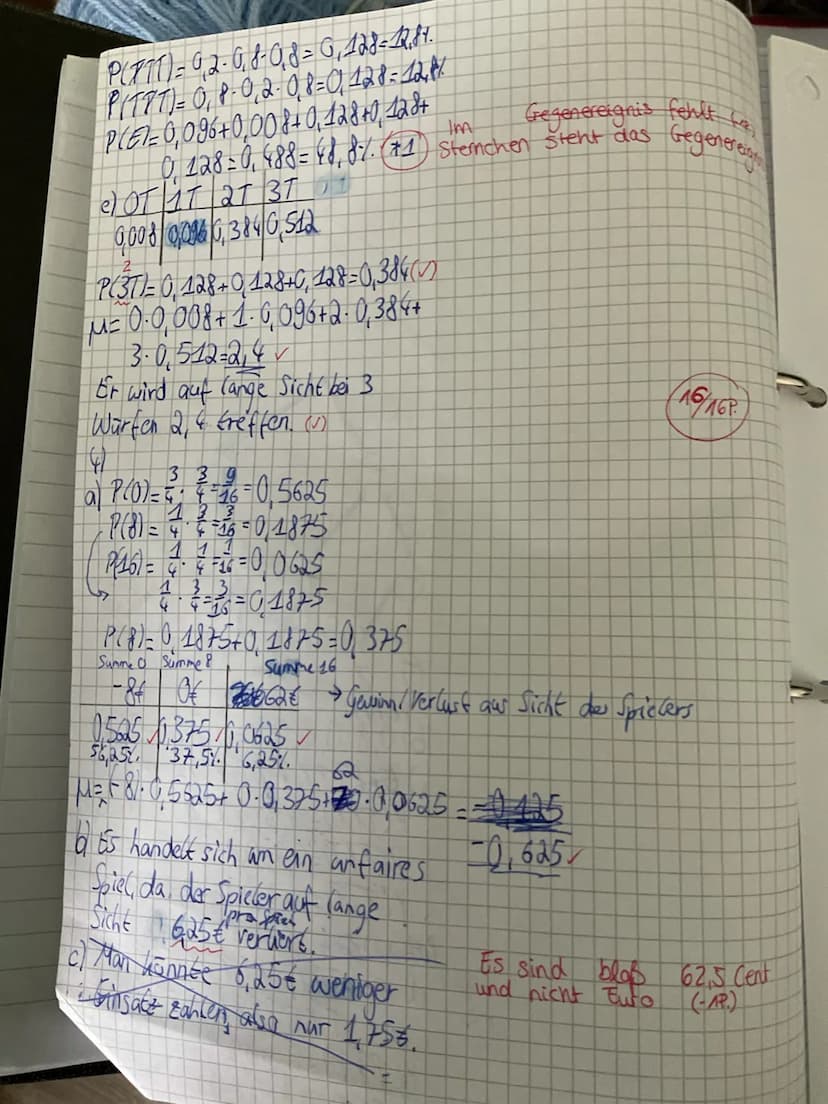 P(PTT)=0,2·0,8·0,8=0,128=12,8%
P(TPT)=0,8·0,2·0,8=0,128=12,8%
P(E)=0,096+0,008+0,128+0,128+
0,128=0,488=48,8% *1
Gegenereignis fehlt
Im
Sternchen steht das Gegenereignis
e) 0T 1T 2T 3T
0,008 0,096 0,384 0,512
2
P(3T)=0,128+0,128+0,128=0,384 (✓)
μ=0·0,008+1·0,096+2·0,384+
3·0,512=2,4 ✓
Er wird auf lange Sicht bei 3
Würfen 2,4 treffen. (✓)
16/16P.
4)
a) P(0)=3/4·3/4=9/16=0,5625
P(8)=1/4·3/4=3/16=0,1875
P(16)=1/4·1/4=1/16=0,0625
1/4·3/4=3/16=0,1875
P(8)=0,1875+0,1875=0,375
Summe 0 Summe 8 Summe 16
-8€ 0€ 62€ → Gewinn/Verlust aus Sicht des Spielers
0,525 ✓ 0,375 ✓ 0,0625 ✓
56,25% 37,5% 6,25%
62
μ=(-8)·0,5625+0·0,375+·0,0625=-0,125
-0,625 ✓
b) Es handelt sich um ein unfaires
Spiel, da, der Spieler auf lange
pro Spiel
Sicht 6,25€ verliert.
c) Man könnte 6,25€ weniger
Einsatz zahlen, also nur 1,75€.
=
Es sind bloß 62,5 Cent
und nicht Euro (-1P.)